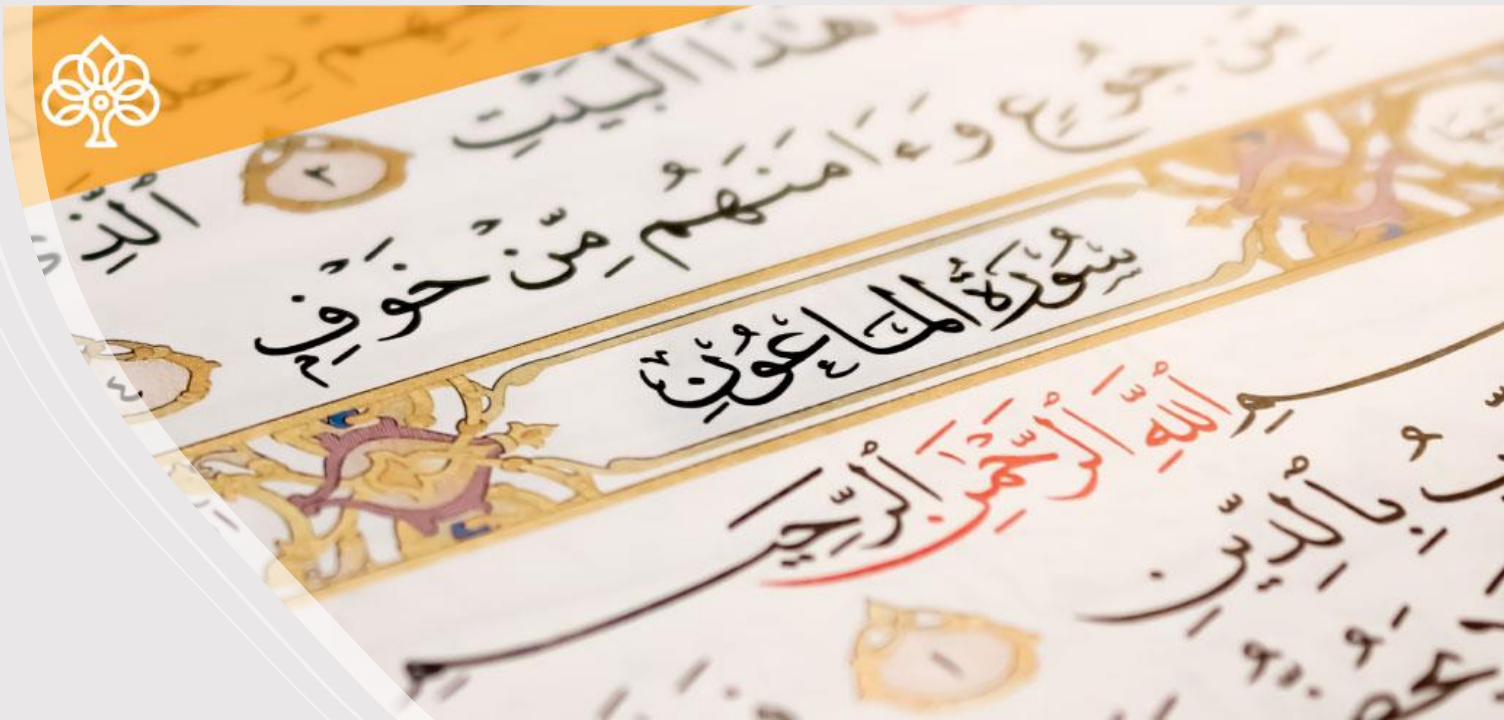 هَٰذَا ٱلْبَيْتِ ٣ ٱلَّذِى
مِّن جُوعٍ وَءَامَنَهُم مِّنْ خَوْفٍۭ ٤
سُورَةُ ٱلْمَاعُونِ
ٱللَّهِ ٱلرَّحْمَٰنِ ٱلرَّحِيمِ
بِٱلدِّينِ ١